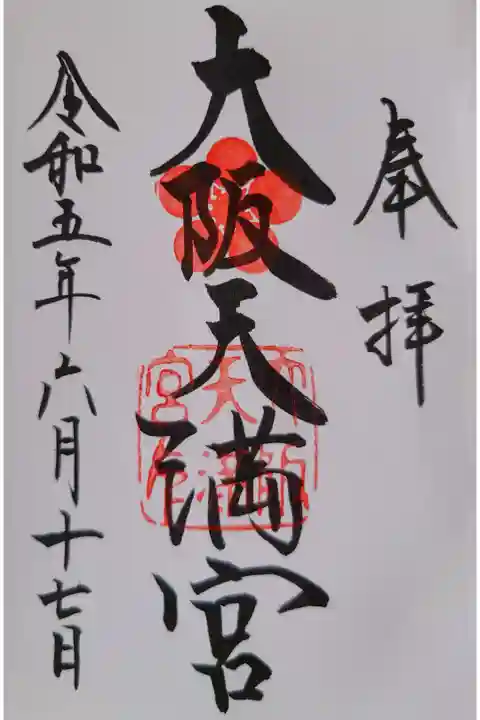 奉拝
大阪天満宮
令和五年六月十七日